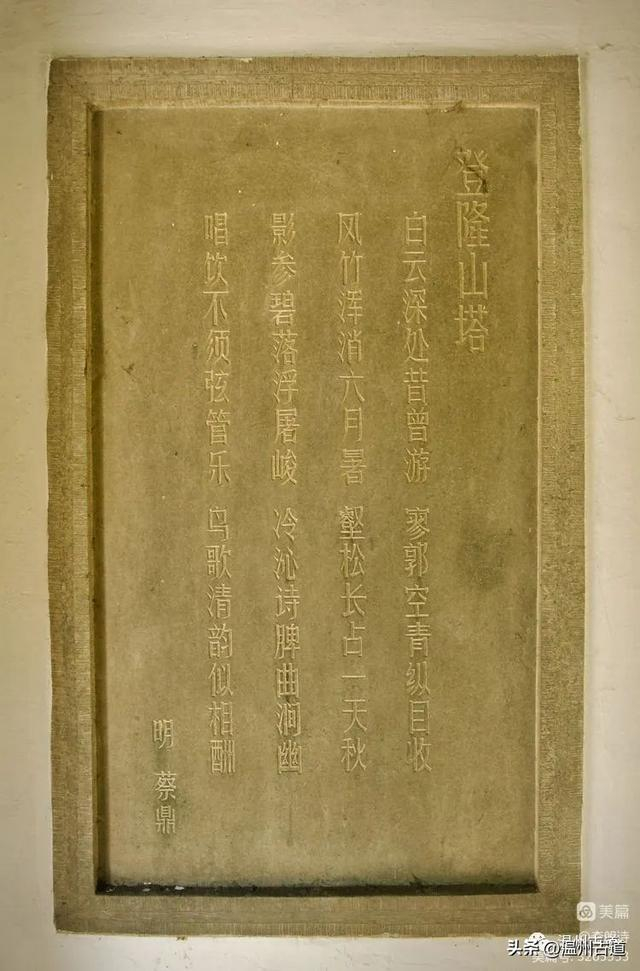 登隆山塔
白云深处昔曾游 寥郭空青纵目收
风竹浑消六月暑 壑松长占一天秋
影参碧落浮屠峻 冷沁诗脾曲涧幽
唱饮不须弦管乐 鸟歌清韵似相酬
明 蔡鼎
美篇
头条@温州古道